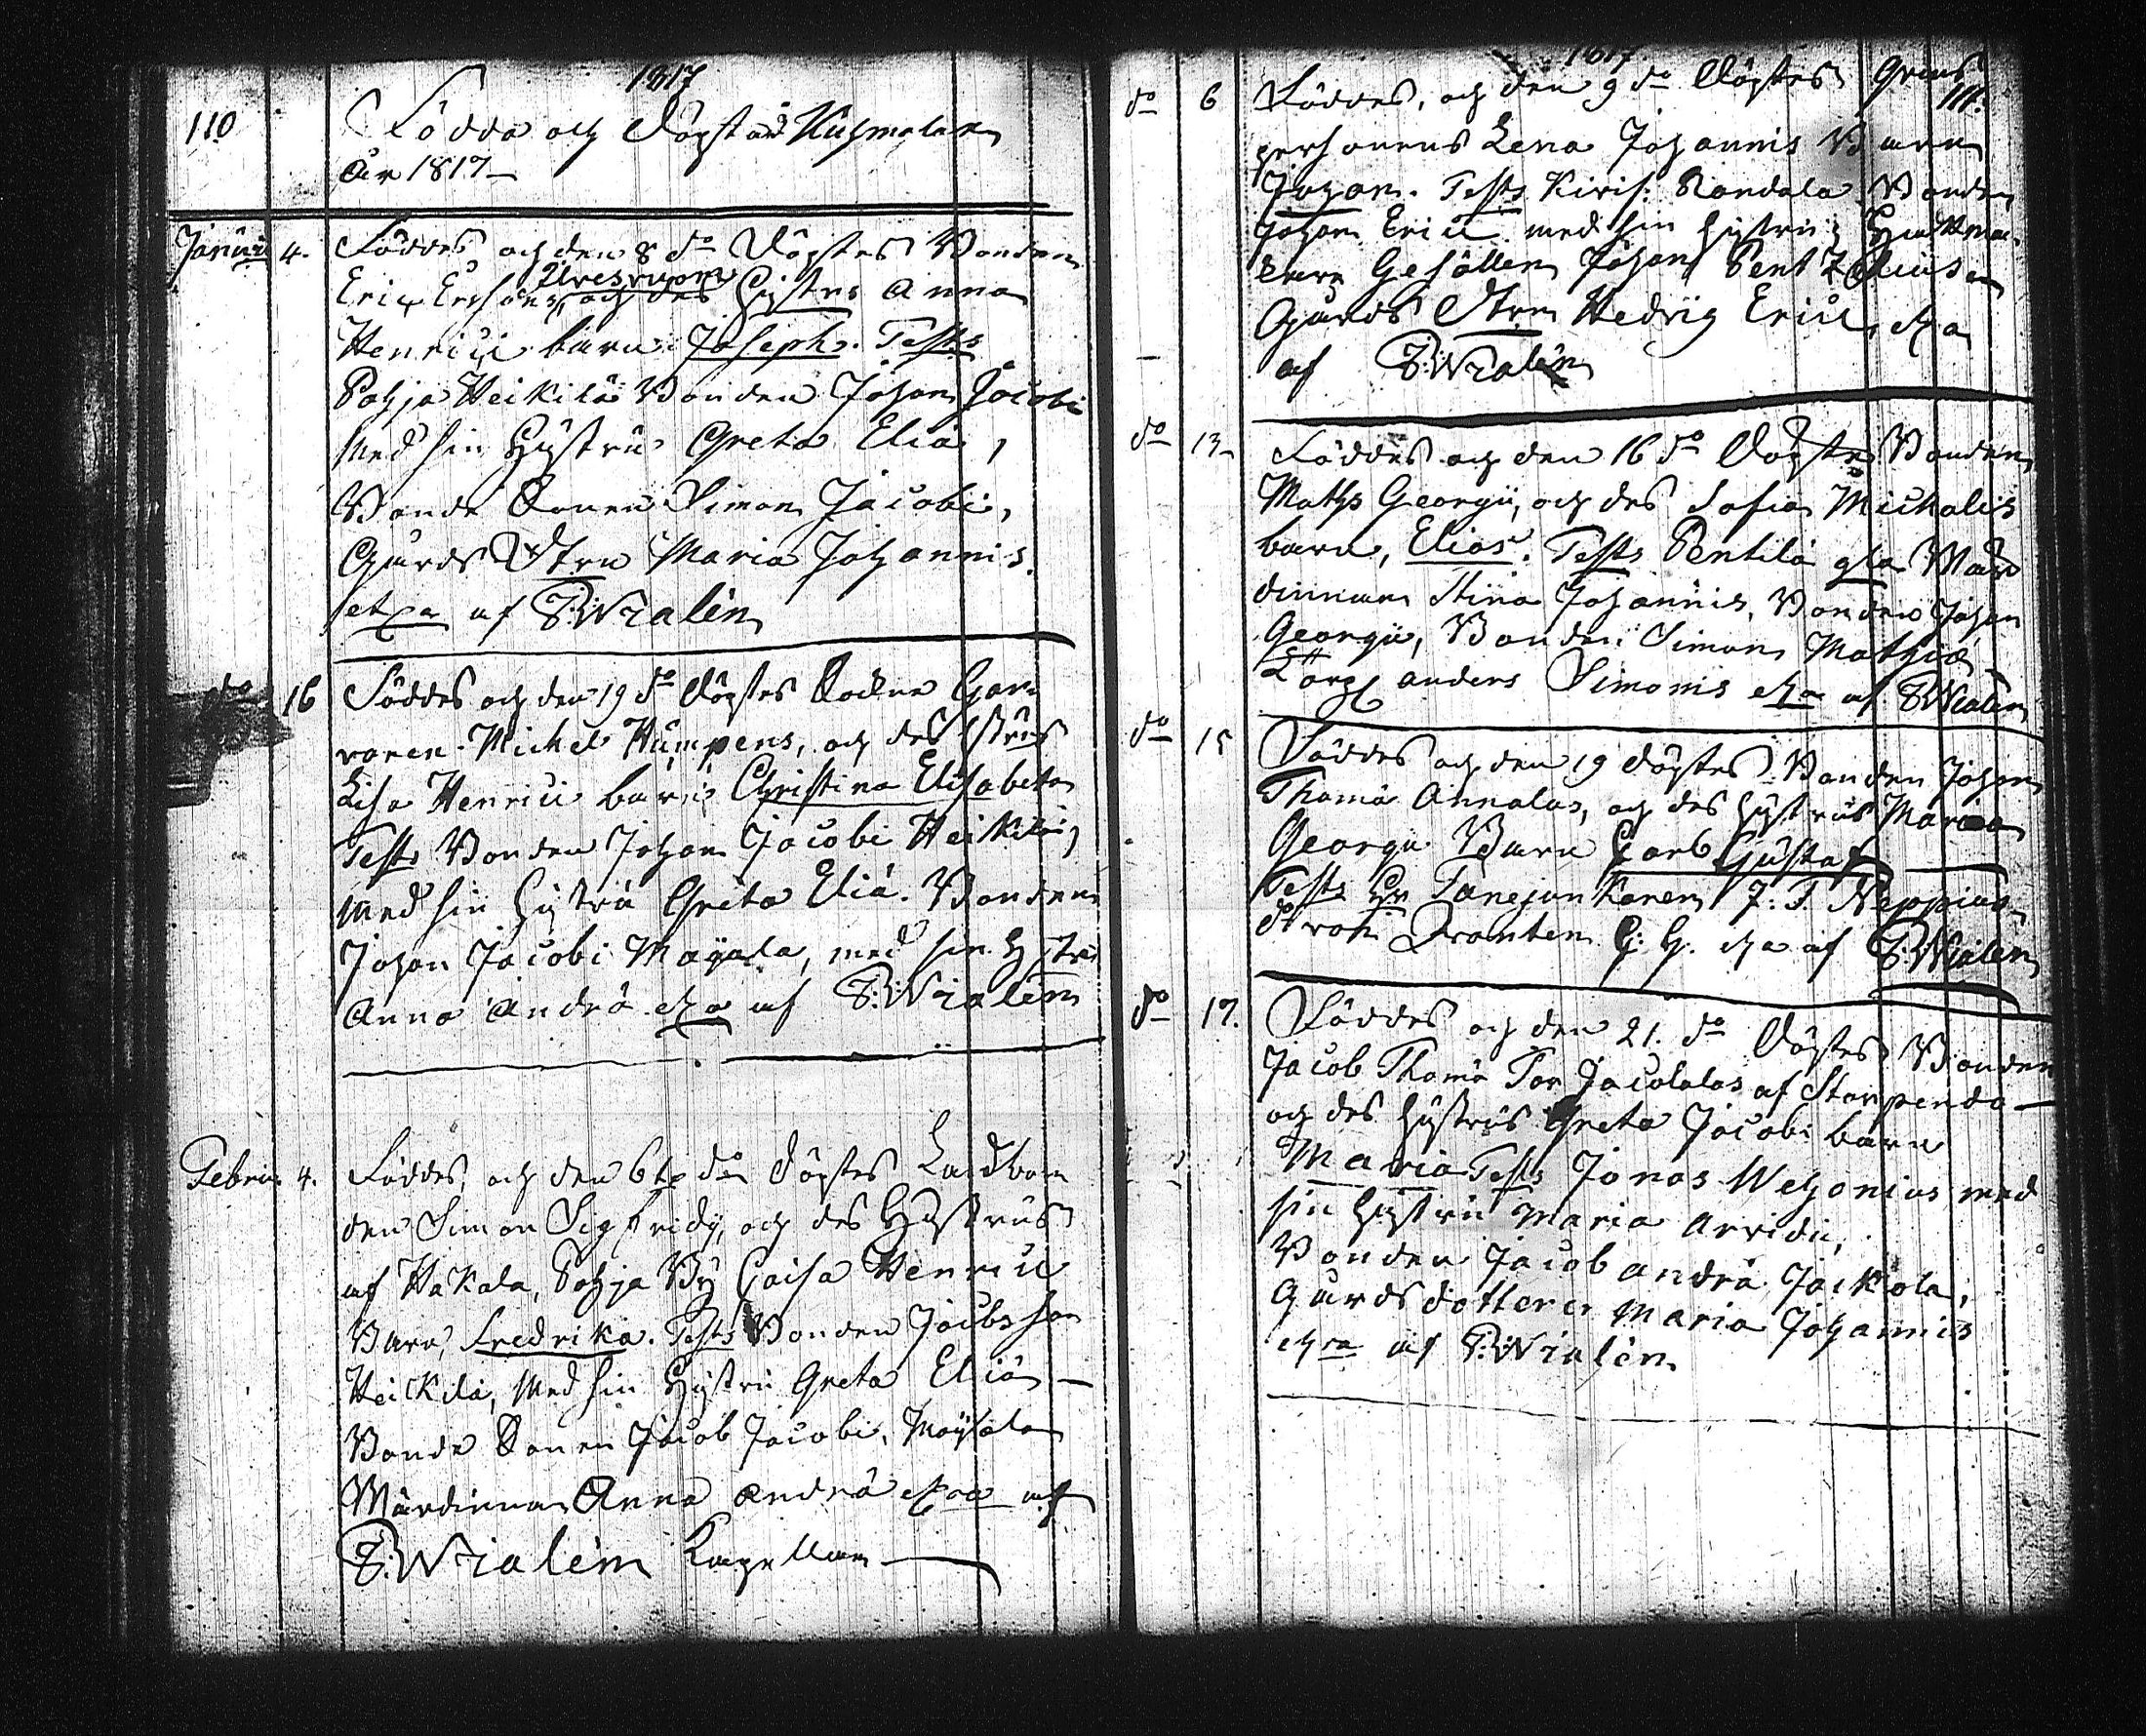 1817
110
Födda och Döpta i Kuhmalax
År 1817
Januarii 4. Föddes och den 8 do Döptes Bonden
Uvesruom
Eric Ersson, och des Hustrus Anna
Henrici barn Joseph. Testes
Pohja Heikilä Bonden Johan Jacobi
med sin Hustru Greta Eliæ,
Bonde Sonen Simon Jacobi,
Gårds Dtrn Maria Johannis.
etxa af T:Wialén
do 16 Föddes och den 19 do Döptes Sockne Gar
varen Michel Humpens, och des Hstrus
Lisa Henrici barn Christina Elisabeta
Tests Bonden Johan Jacobi Heikilä,
med sin Hustru Greta Eliä. Bonden
Johan Jacobi Mayala, med sin Hstru
Anna Andrä etxa af T:Wialén
Februa. 4. Föddes, och den 6te do Döptes Landbon
den Simon Sigfridij, och des Hustrus
af Hakala, Pohja By Caisa Henrici
Barn, Fredrika. Tests Bonden Jacobsson
Heickilä, med sin Hustru Greta Eliä
Bonde Sonen Jacob Jacobi, Mayala
Wärdinnan Anna Andrä etxa af
T:Wialén Capellan
1817
111.
do 6 Föddes, och den 9 do Döptes Qvins
personens Lena Johannis Barn
Johan. Tests Kirif: Randala Bonden
Johan Erici med sin Hustru,
Gesällen Johan Pent Zelius
Gårds Dtrn Hedvig Erici, etxa
af T:Wialén
do 13 Föddes och den 16 do Döptes Bonden
Maths Georgii, och des Sofia Michalis
barn, Elias. Tests Pentilä gla Wär
dinnan Stina Johannis, Bonden Johan
Georgii, Bonden Simon Mathiæ
Anders Simonis etxa af T:Wialén
do 15 Föddes och den 19 döptes Bonden Johan
Thomä Annalas, och des Hustrus Maria
Georgii Barn Carl Gustaf
Tests Hr Fanejunkaren J. F. Neppius
Dronten C. G. etxa af T:Wialén
do 17. Föddes och den 21. do Döptes Bonden
Jacob Thomä Tor Jacolalas af Storpenda
och des Hustrus Greta Jacobi barn
Maria Tests Jonas Wegonius med
sin Hustru Maria Arvidii,
Bonden Jacob Andrä Jackola,
Gårdsdotteren Maria Johannis
etxa af T:Wialén